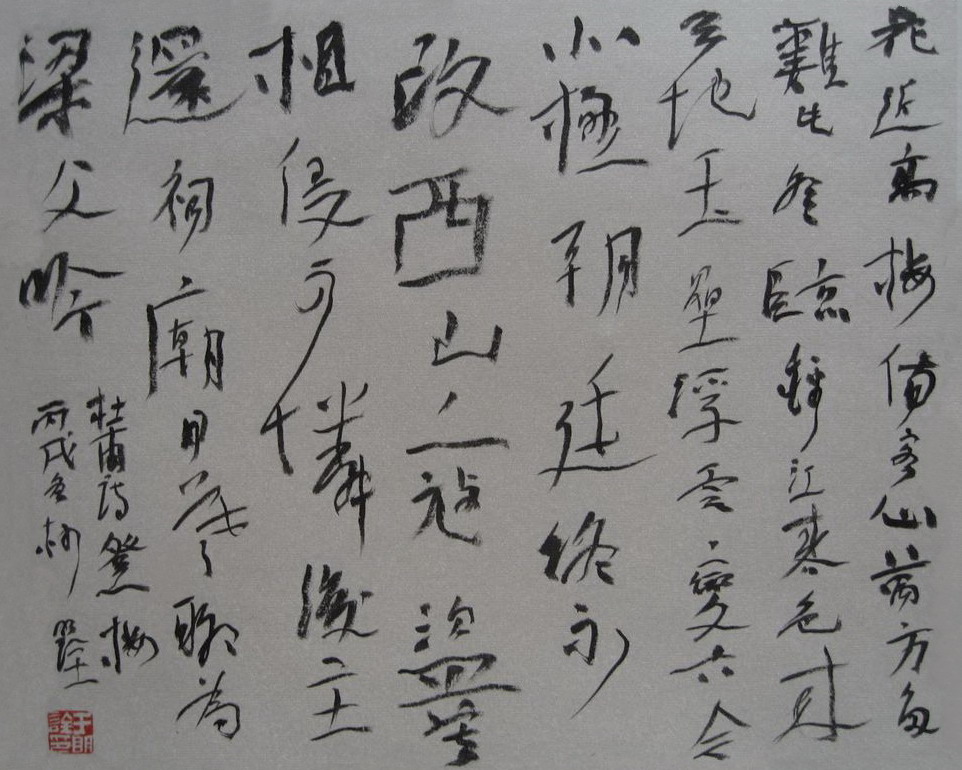 花近高樓傷客心萬方多
難此登臨錦江春色来
天地玉壘浮雲變古今
北極朝廷終不
改西山寇盜莫
相侵可憐後主
還祠廟日暮聊為
梁父吟
杜甫詩登樓
丙戌冬
于明詮印